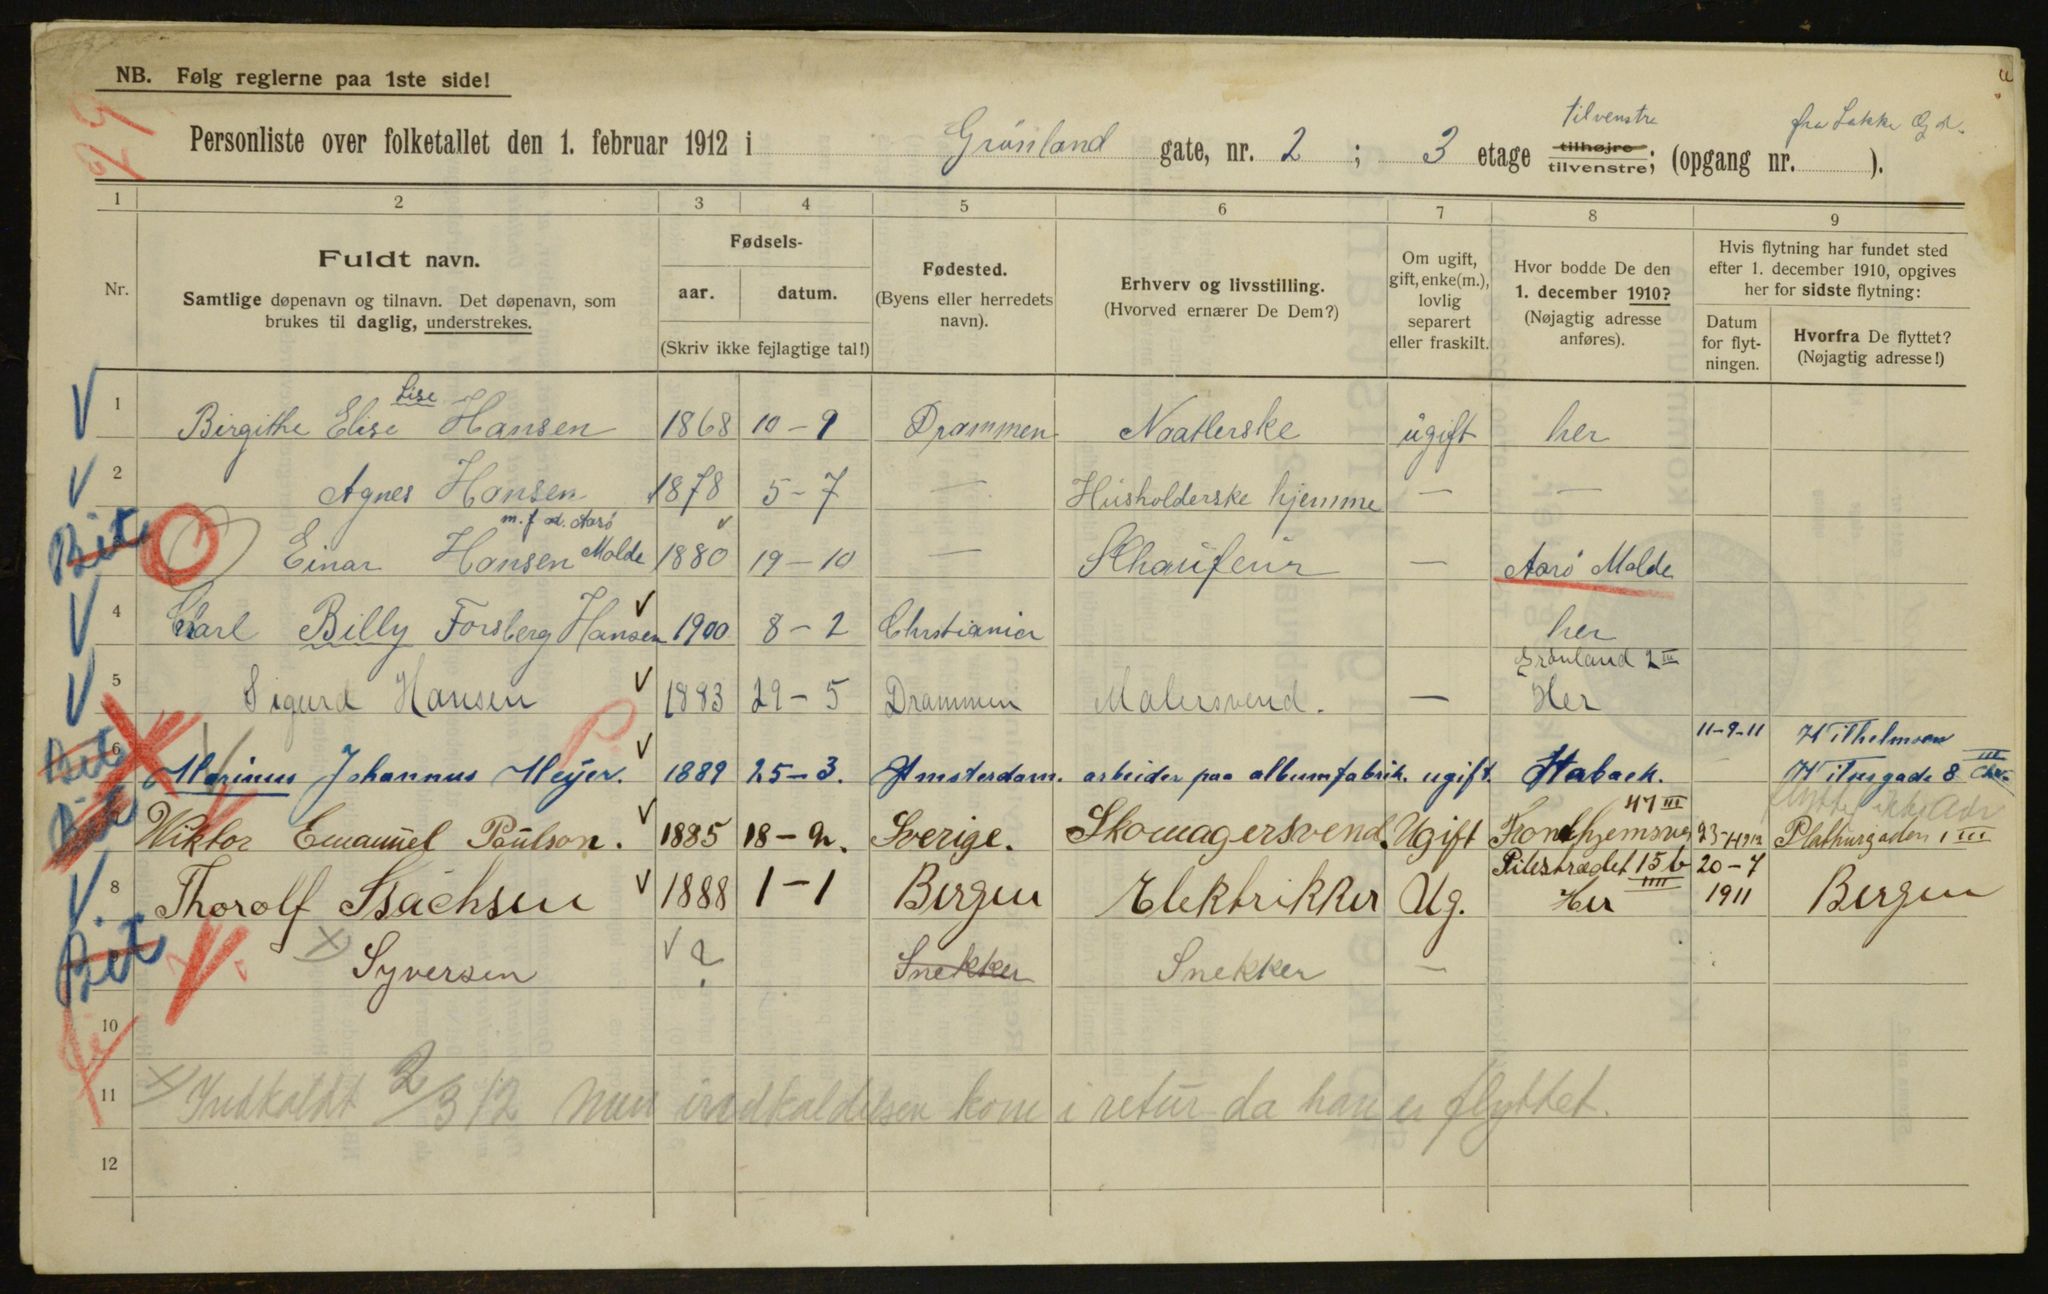 NB. Følg reglerne paa 1ste side!
Personliste over folketallet den 1. februar 1912 i Grönland gate, nr. 2 ; 3 etage tilhøjre tilvenstre; (opgang nr. ).
tilvenstre
fra
1 2 3 4 5 6 7 8 9
Nr.
Fuldt navn.
Samtlige døpenavn og tilnavn. Det døpenavn, som
brukes til daglig, understrekes.
Fødsels-
aar. datum.
(Skriv ikke fejlagtige tal!)
Fødested.
(Byens eller herredets
navn).
Erhverv og livsstilling.
(Hvorved ernærer De Dem?)
Om ugift,
gift, enke(m.),
lovlig
separert
eller fraskilt.
Hvor bodde De den
1. december 1910?
(Nøjagtig adresse
anføres).
Hvis flytning har fundet sted
efter 1. december 1910, opgives
her for sidste flytning:
Datum
for flyt-
ningen.
Hvorfra De flyttet?
(Nøjagtig adresse!)
Lise
1 Birgithe Elise Hansen 1868 10-9 Drammen Naatlerske ugift her
2 Agnes Hansen 1878 5-7 — Husholderske hjemme — —
m. f ad. Aarö
Bet. Einar Hansen Molde 1880 19-10 — Schaufeur — Aarö Molde
4 Carl Billy Forsberg Hansen 1900 8-2 Chrstiania her
Grönland 2 III
5 Sigurd Hansen 1883 29-5 Drammen Malersvend. — Her
11-9-11 Wilhelmsen
Bet 6 Marinus Johannus Meyer. 1889 25-3. Amsterdam. arbeider paa albumfabrik. ugift. Stabæk. — 8 III Chr.
flyttet ikke Adr
47 III
Bet Wiktor Emanuel Paulson. 1885 18-2. Sverige. Skomagersvend. Ugift Trondhjemsvei 23- 1912 1 III
Pilestrædet 15 b IIII 20-7
8 Thorolf Isachsen 1888 1-1 Bergen Elektrikker Ug. Her 1911 Bergen
Bet × Syversen ? Snekker Snekker —
10
11 × Indkaldt 2/3 12 Men indkaldelsen kom i retur da han er flyttet.
12